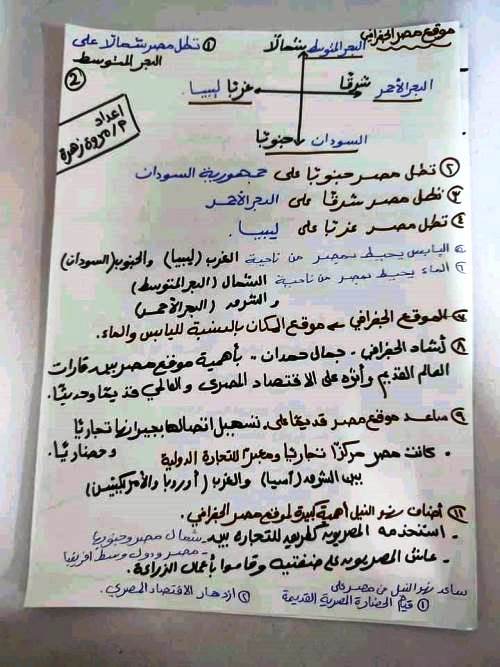 موقع مصر الجغرافي
البحر المتوسط شمالاً
① تطل مصر شمالاً على
البحر المتوسط
②
البحر الأحمر شرقًا
غربًا ليبيا.
السودان جنوبًا
اعداد
م/مروة زهرة
② تطل مصر جنوبًا على جمهورية السودان
③ تطل مصر شرقًا على البحر الأحمر
④ تطل مصر غربًا على ليبيا.
⑤ اليابس يحيط بمصر من ناحية الغرب (ليبيا) والجنوب (السودان)
⑥ الماء يحيط بمصر من ناحية الشمال (البحر المتوسط)
و الشرق (البحر الأحمر)
⑦ الموقع الجغرافي ← موقع المكان بالنسبة لليابس والماء.
⑧ أشاد الجغرافي - جمال حمدان - بأهمية موقع مصر بين قارات
العالم القديم وأثره على الاقتصاد المصرى والعالمي قديمًا وحديثًا.
⑨ ساعد موقع مصر قديمًا على تسهيل اتصالها بجيرانها تجاريًا
وحضاريًا.
• كانت مصر مركزًا تجاريًا ومعبرًا للتجارة الدولية
بين الشرق (آسيا) والغرب (أوروبا والأمريكيتين)
⑪ أضاف نهر النيل أهمية كبيرة لموقع مصر الجغرافي.
- استخدمه المصريون كطريق للتجارة بين - شمال مصر وجنوبها
- مصر ودول وسط افريقيا
- عاش المصريون على ضفتيه وقاموا بأعمال الزراعة.
ساعد نهر النيل من مصر على
① قيام الحضارة المصرية القديمة
② ازدهار الاقتصاد المصري.